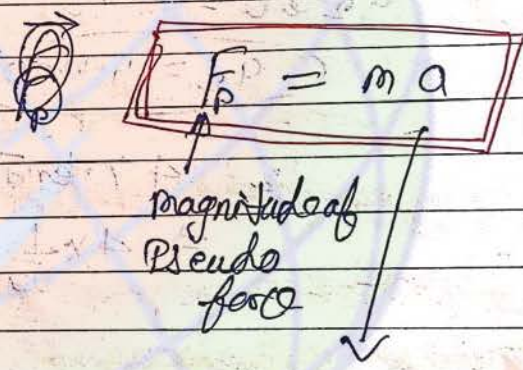 F_p = m a
magnitude of
Pseudo
force